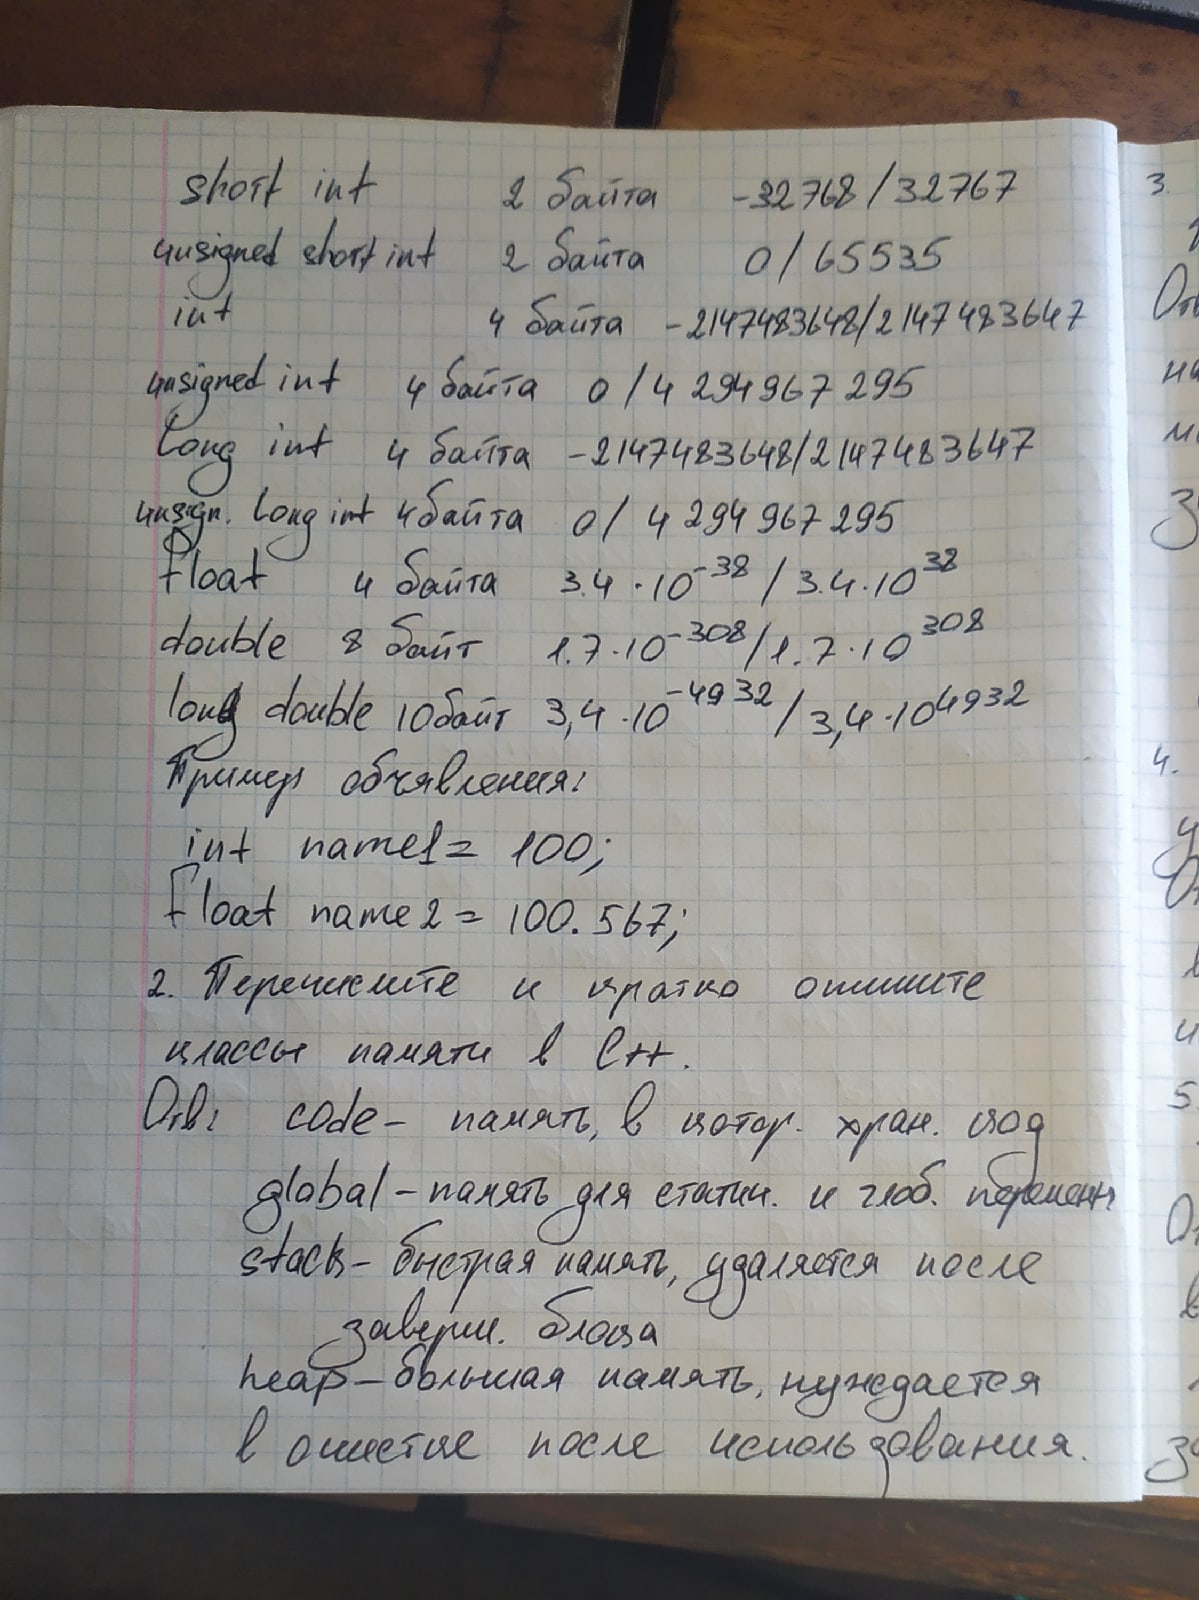 short int 2 байта -32768/32767
unsigned short int 2 байта 0/65535
int 4 байта -2147483648/2147483647
unsigned int 4 байта 0/4 294 967 295
long int 4 байта -2147483648/2147483647
unsign. long int 4 байта 0/4 294 967 295
float 4 байта 3.4·10⁻³⁸/3.4·10³⁸
double 8 байт 1.7·10⁻³⁰⁸/1.7·10³⁰⁸
long double 10 байт 3,4·10⁻⁴⁹³²/3,4·10⁴⁹³²
Пример объявления:
int name1 = 100;
float name2 = 100.567;
2. Перечислите и кратко опишите
классы памяти в C++.
Отв: code - память, в котор. хран. код
global - память для статич. и глоб. переменн
stack - быстрая память, удаляется после
заверш. блока
heap - большая память, нуждается
в очистке после использования.
3.
4.
5.